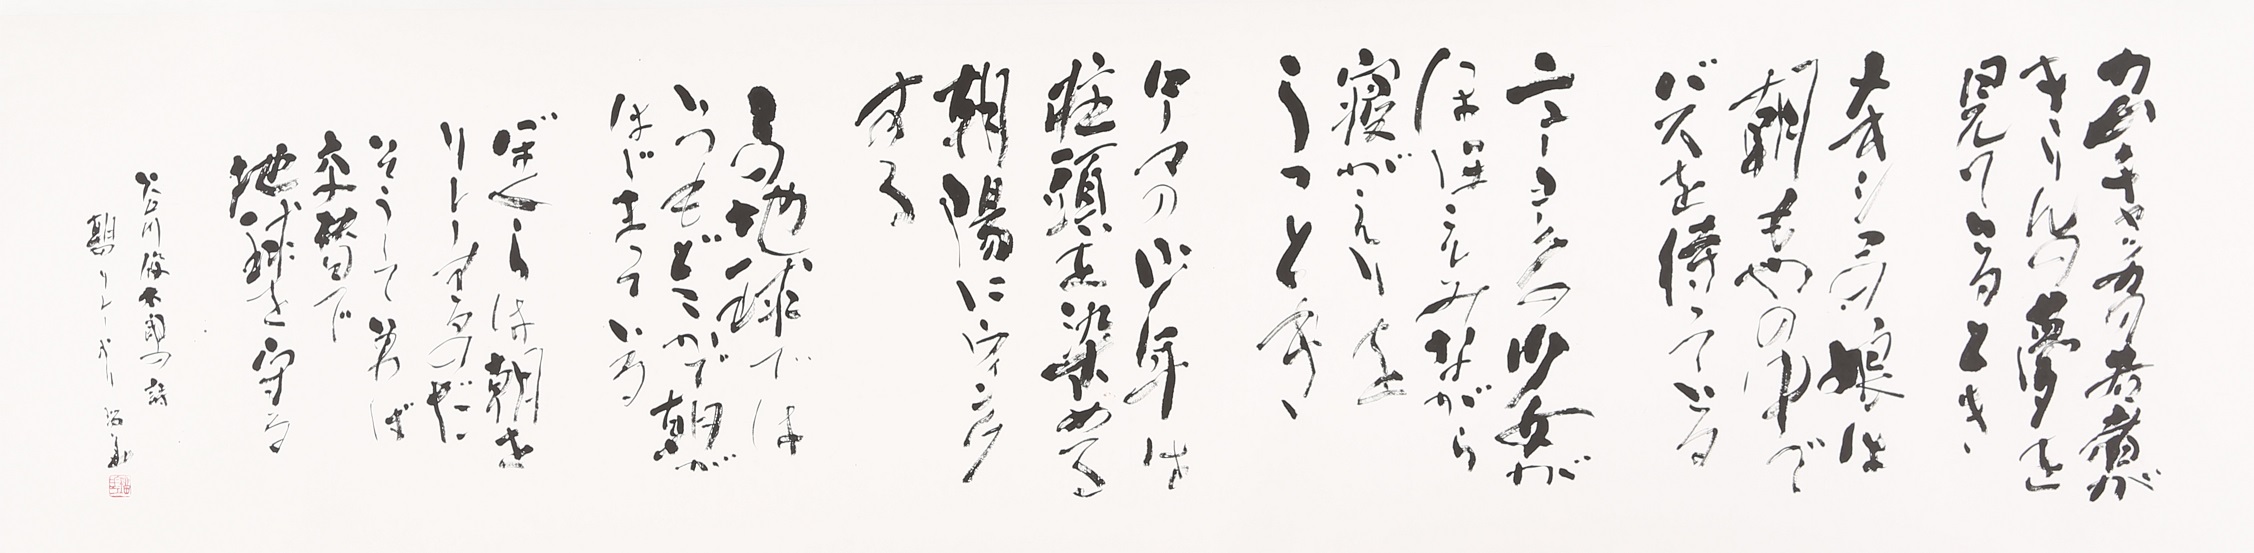 カムチャッカの若者が
きりんの夢を
見ているとき、
メキシコの娘は
朝もやの中で
バスを待っている
ニューヨークの少女が
ほほえみながら
寝がえりを
うつとき、
ローマの少年は
柱頭を染める
朝陽にウインク
する
この地球では
いつもどこかで朝が
はじまっている
ぼくらは朝を
リレーするのだ
そうしていわば
交替で
地球を守る
谷川俊太郎の詩
朝のリレーより